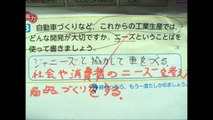 自動車づくりなど、これからの工業生産では、
どんな開発が大切ですか。ニーズということばを
使って書きましょう。
ジャニーズと協力して車をつくる
社会や消費者のニーズを考え
商品づくりをする。
もう一度たしかめましょう。